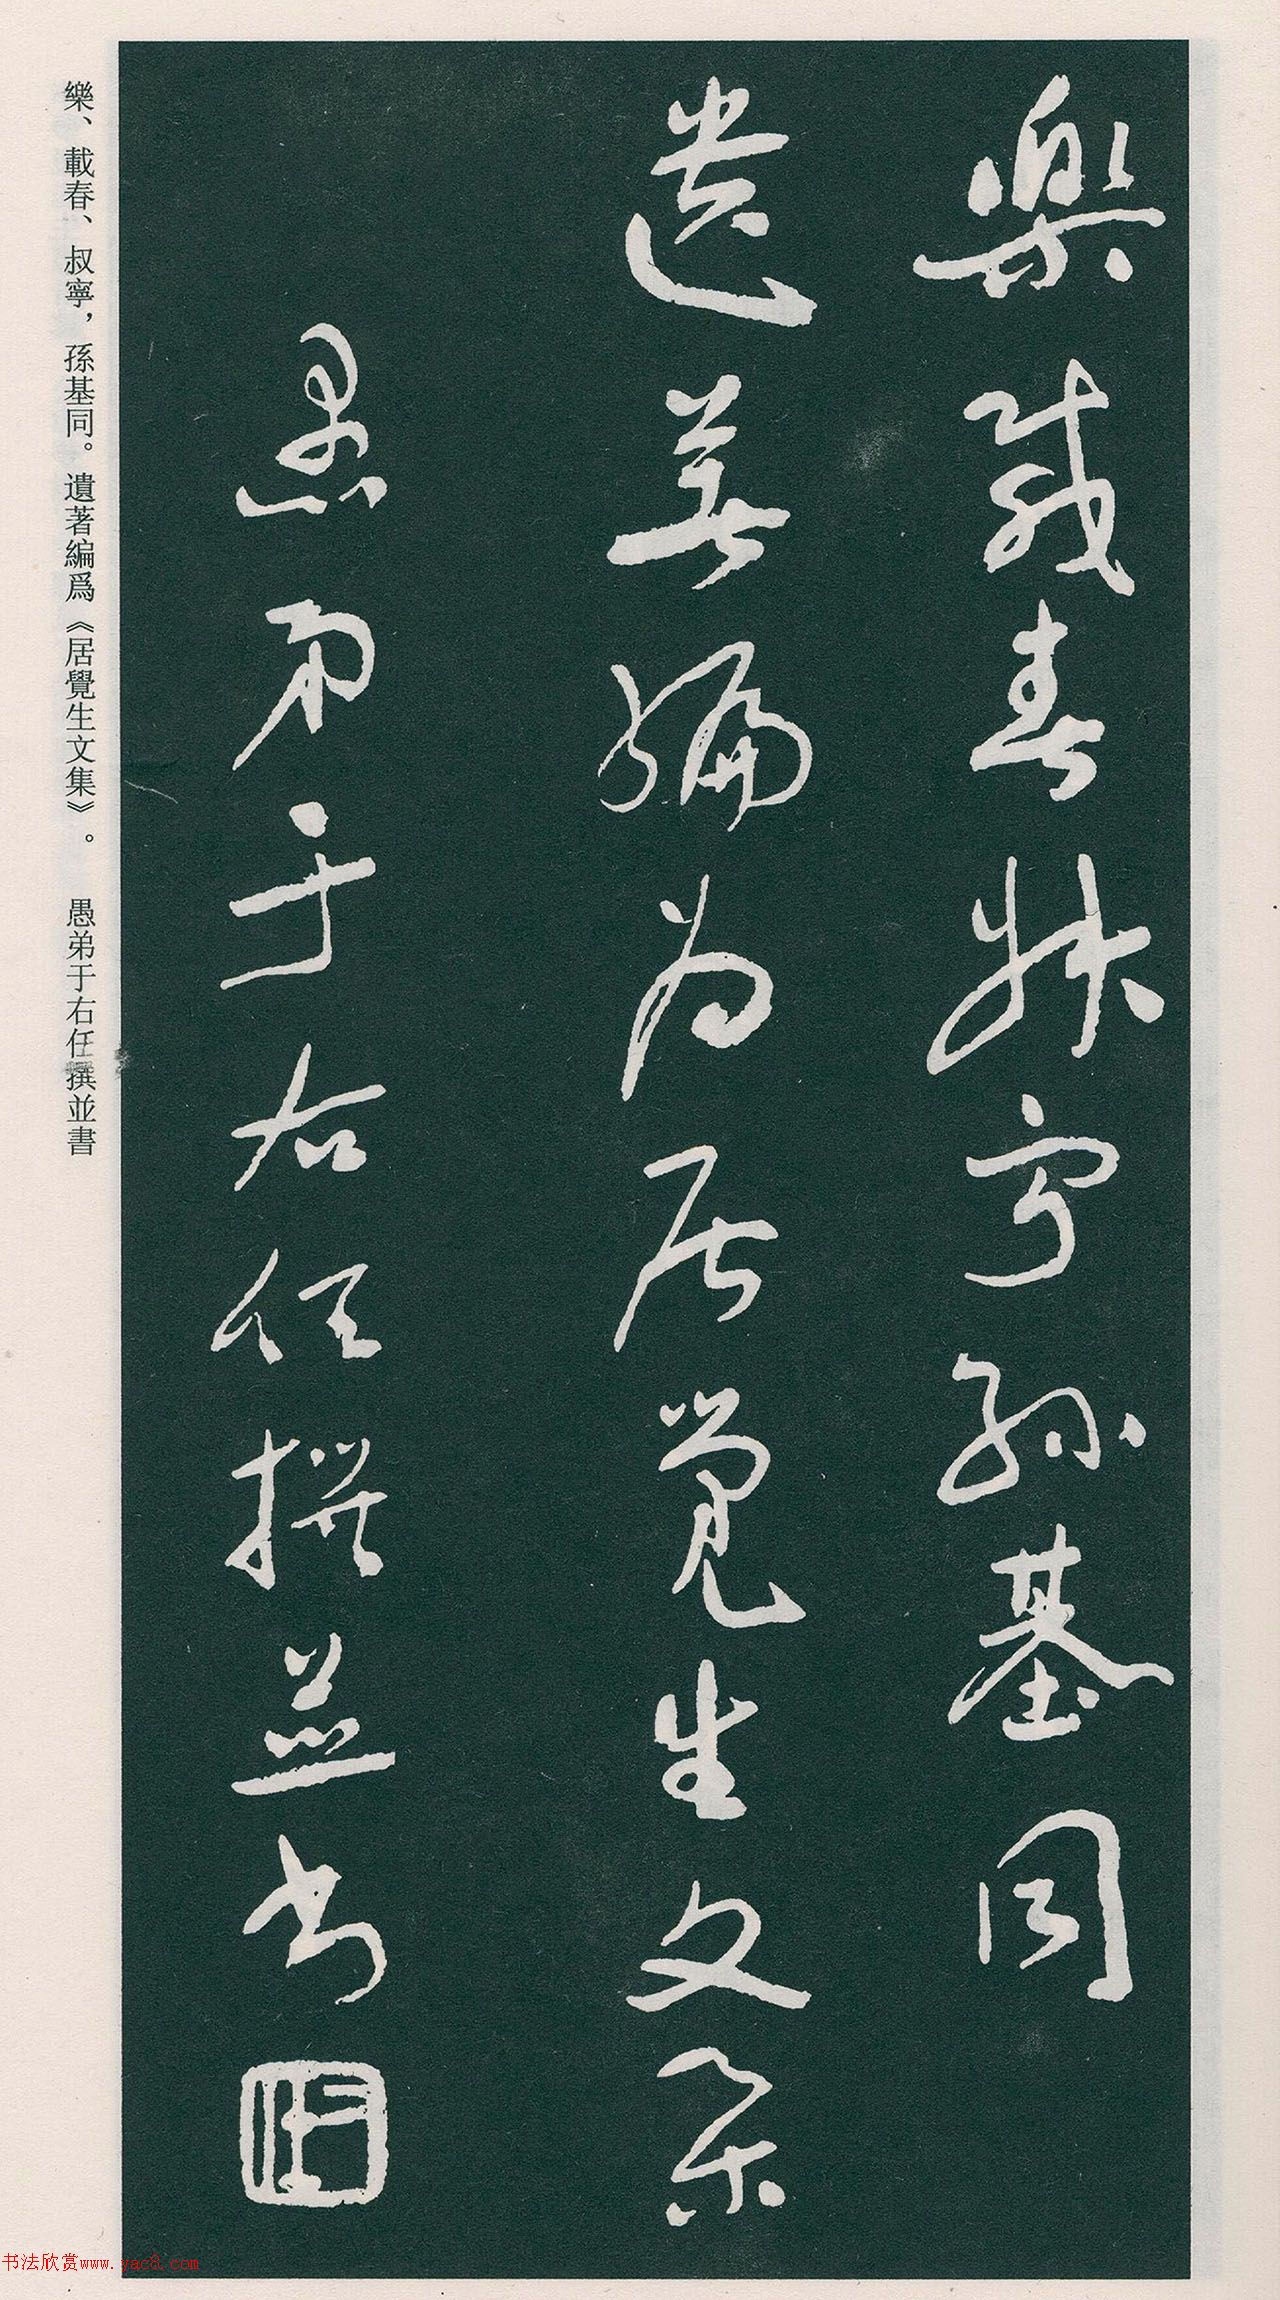 樂載春叔寧孫基同
遺著編为居覺生文集
愚弟于右任撰並書
樂、載春、叔寧，孫基同。遺著編爲《居覺生文集》。 愚弟于右任撰並書
书法欣赏www.yac8.com